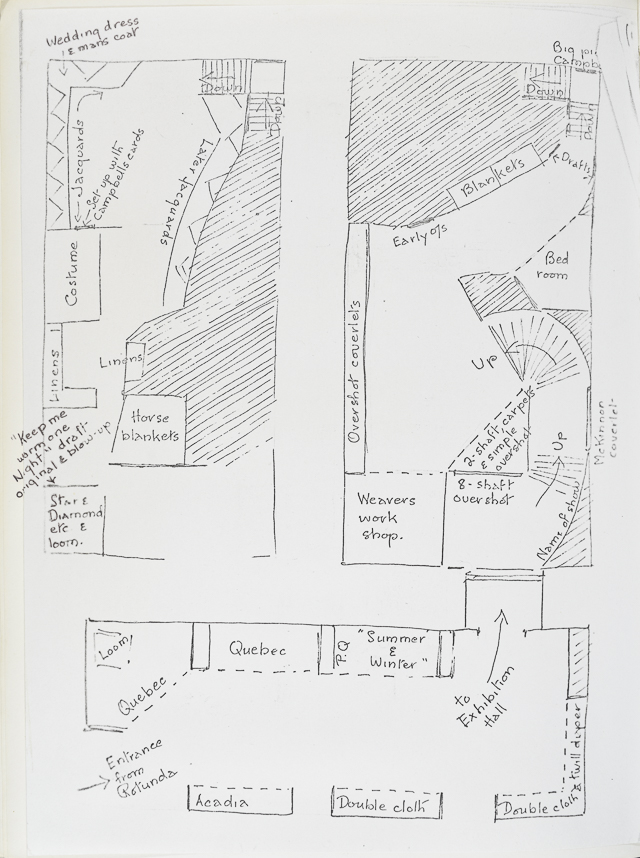 Wedding dress
& mans coat
Down
Down
Jacquards
Set up with
Campbells cards
Later Jacquards
Costume
Linens
Linens
Horse
blankets
"Keep me
warm one
Night" draft
original & blow-up
Star &
Diamond
etc &
loom.
Big
Campb
Down
Down
Drafts
Blankets
Early o/s
Bed
room
Overshot coverlets
Up
2-shaft carpets
& simple
overshot
McKinnon
coverlet
Up
Weavers
work
shop.
8-shaft
overshot
Name of show
Loom
Quebec
Quebec
P.Q
"Summer
&
Winter"
to
Exhibition
Hall
Entrance
from
Rotunda
Acadia
Double cloth
Double cloth & twill diaper